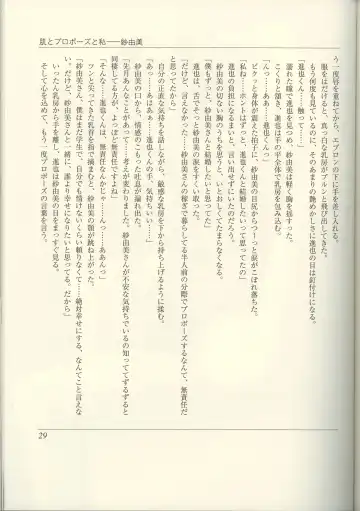 肌とプロポーズと私——紗由美
う一度唇を重ねてから、エプロンの下に手を差し入れる。
紐をはだけると、真っ白な乳房がプルンと飛び出してきた。
もう何度も見ているのに、そのあまりの艶めかしさに進也の目は釘付けになる。
「進也くん……触って……」
濡れた瞳で進也を見つめ、紗由美は軽く胸を揺する。
こくりと頷き、進也は手の平全体で乳房を包み込む。
「あっ……あはぁ……進也くんの……」
ピクッと身体が震えた拍子に、紗由美の目尻からつーっと涙がこぼれ落ちた。
「私ね……ホントはずっと、進也くんと結婚したいって思ってたの」
進也の負担になるまいと、言い出せずにいたのだろう。
紗由美の切ない胸のうちを思うと、いとおしくてたまらなくなる。
「僕もずっと、紗由美さんと結婚したいと思ってた」
進也は、舌でそっと紗由美の涙をすくい取った。
「だけど、言えなかった……紗由美さんの稼ぎで暮らしてる半人前の分際でプロポーズするなんて、無責任だ
と思ってたから」
自分の正直な気持ちを話しながら、敏感な乳房を下から持ち上げるように揉む。
「あっ、ああっ……進也くんの手、気持ちいい……」
紗由美の口から、情感のこもった吐息が漏れ出た。
「先月あんなことがあって、考えが変わりました。紗由美さんが不安な気持ちでいるの知っててずるずると
同棲してる方が、よっぽど無責任なんじゃないかって」
「そんな……進也くんは、無責任なんかじゃ……っ……ああんっ」
ツンと尖ってきた乳首を指で摘まむと、紗由美の顎が跳ね上がった。
「紗由美さん、僕はまだ学生で、自分でも情けないくらい頼りなくて……絶対幸せにする、なんてこと言えな
い。だけど、紗由美さんと一緒に、誰より幸せになりたいと思ってる。だから」
いったん乳房から手を離し、進也は紗由美の目をまっすぐ見る。
そして心を込めて、もう一度プロポーズの言葉を言う。
29